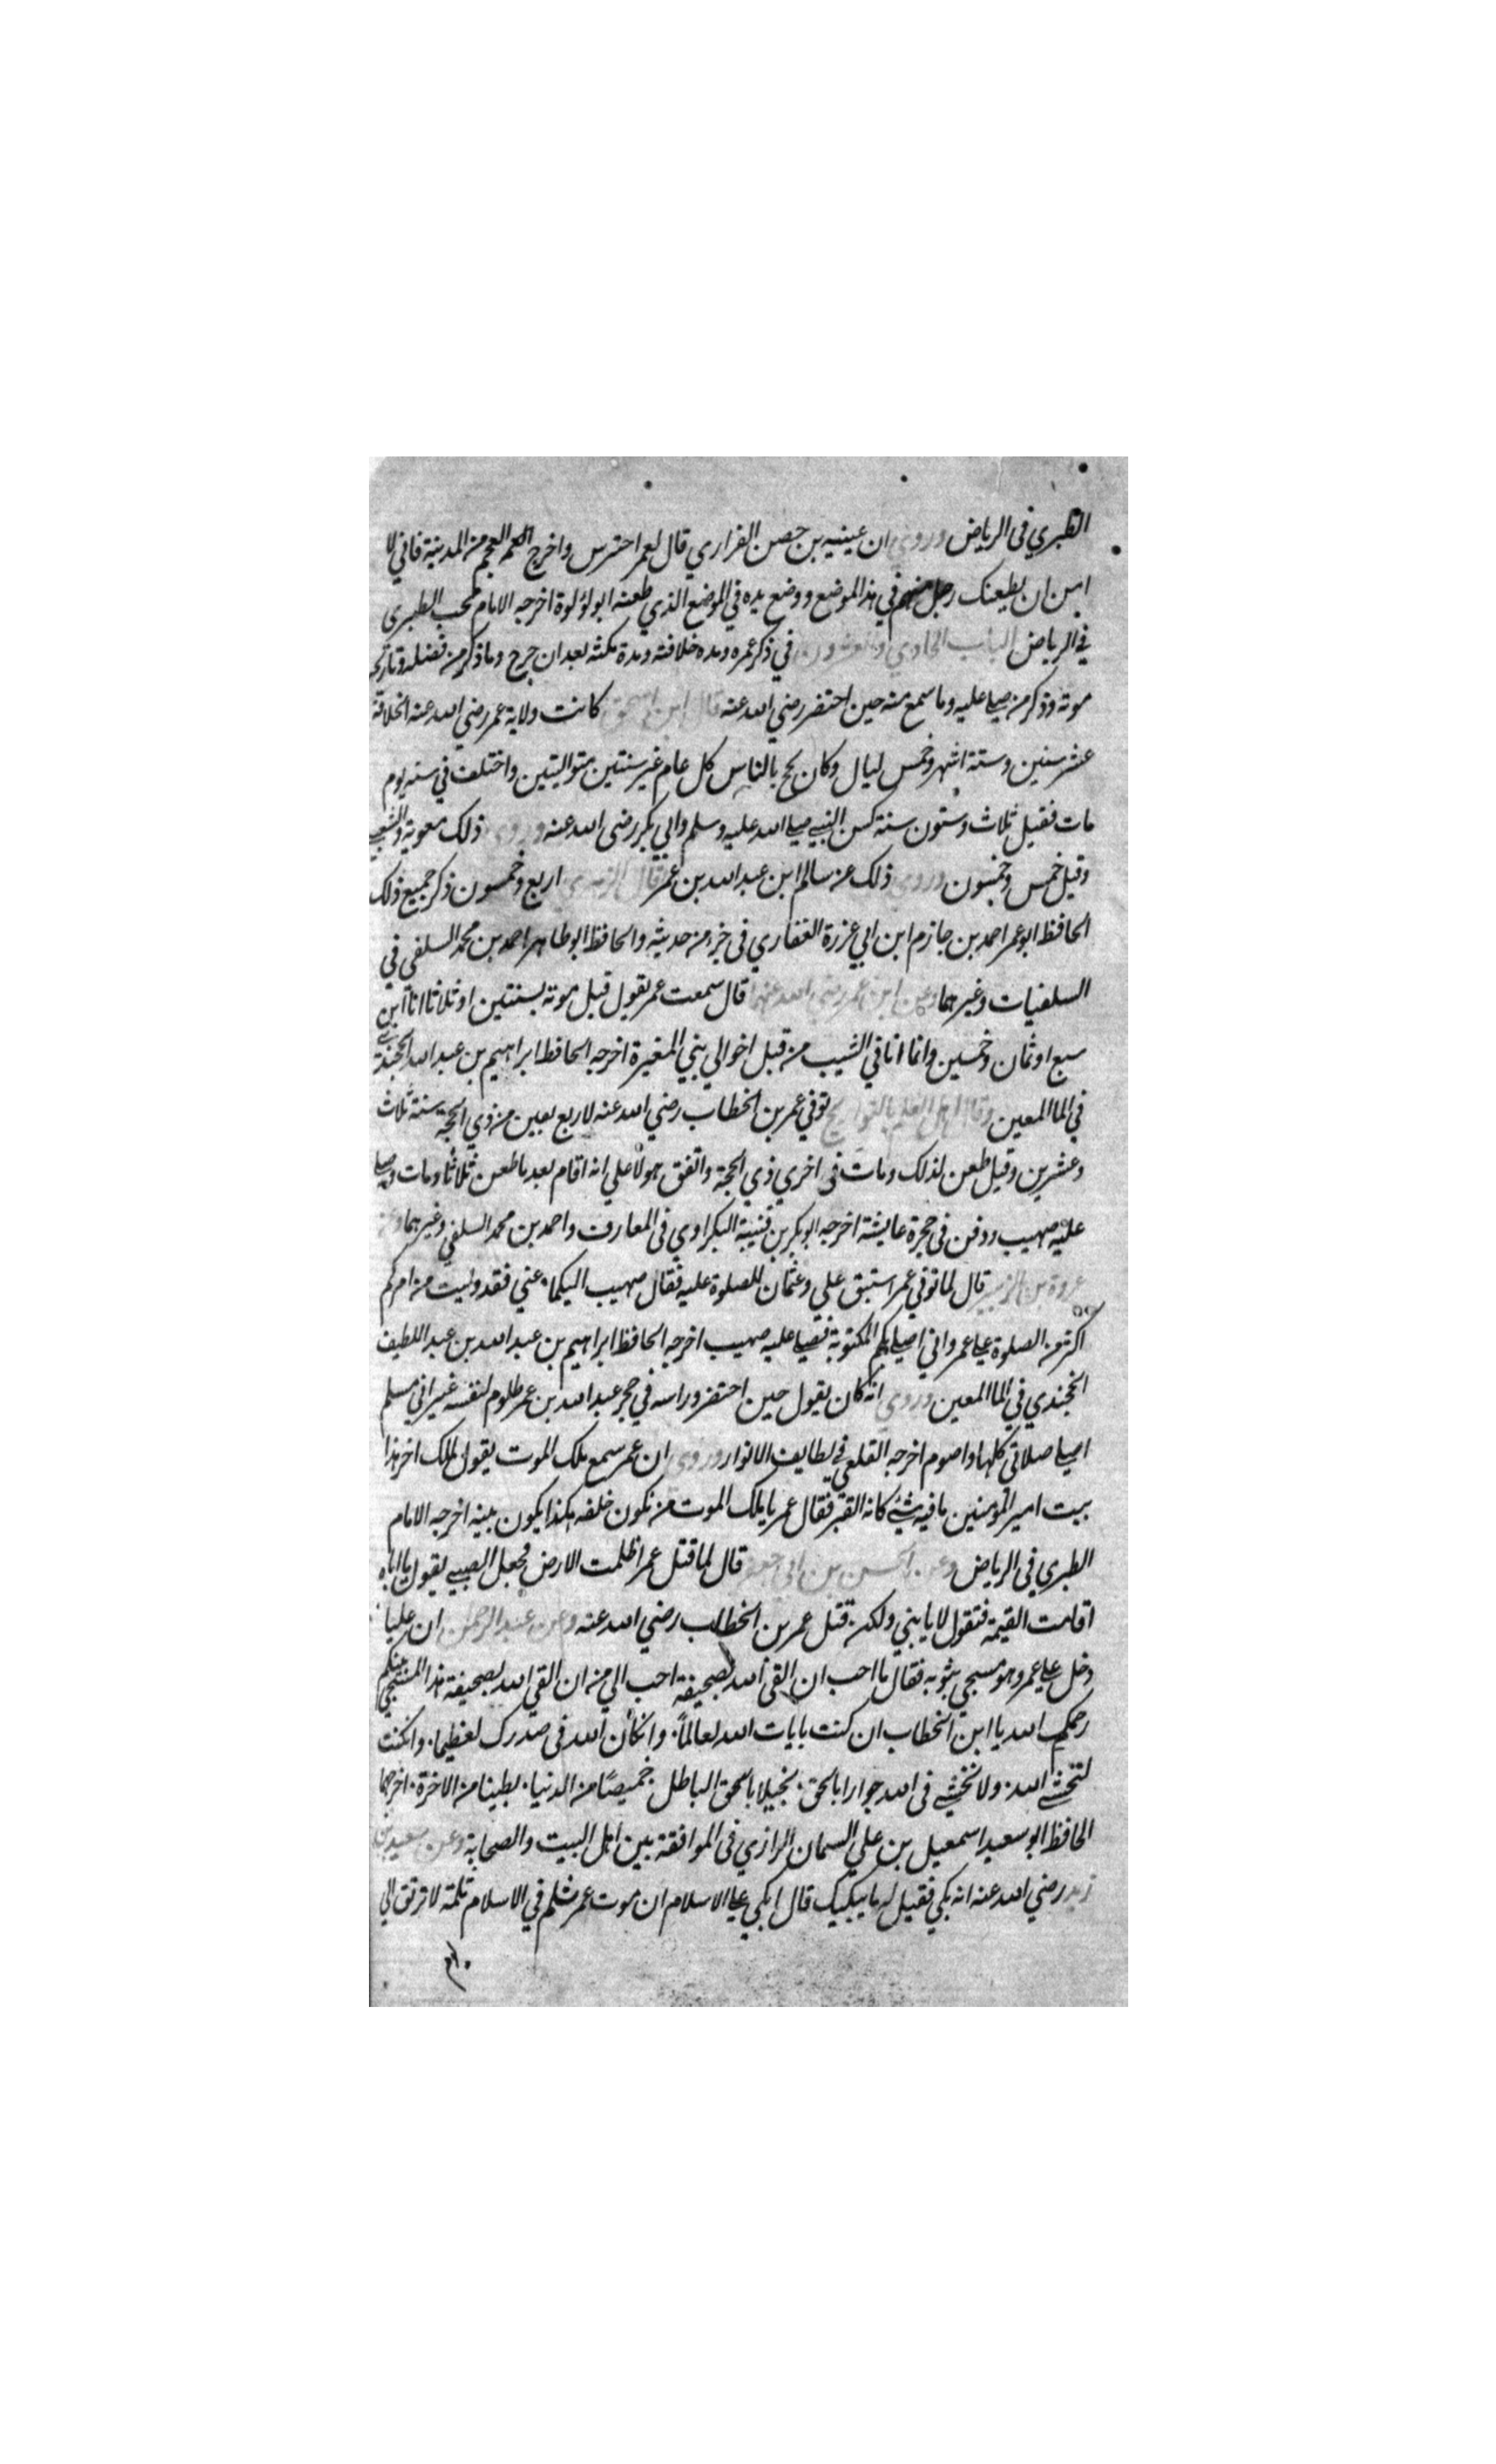 الطبري في الرياض وروي ان عيينه بن حصن الفزاري قال لعمر احترس واخرج العجم من المدينة فاني لا
امن ان يطعنك رجل منهم في هذا الموضع ووضع يده في الموضع الذي طعنه ابو لؤلوة اخرجه الامام محب الطبري
في الرياض الباب الحادي والعشرون في ذكر عمره ومده خلافته ومدة مكثه بعد ان جرح وما ذكر من فضله وتاريخ
موته وذكر من صلي عليه وما سمع منه حين احتضر رضي الله عنه قال ابن اسحق كانت ولاية عمر رضي الله عنه الخلافة
عشر سنين وستة اشهر وخمس ليال وكان يحج بالناس كل عام غير سنتين متواليتين واختلف في سنه يوم
مات فقيل ثلاث وستون سنة كسن النبي صلي الله عليه وسلم وابي بكر رضي الله عنه وروي ذلك معوية والشعبي
وقيل خمس وخمسون وروي ذلك عن سالم ابن عبد الله بن عمر وقال الزهري اربع وخمسون ذكر جميع ذلك
الحافظ ابو عمر احمد بن حازم ابن ابي عزرة الغفاري في جزء من حديثه والحافظ ابو طاهر احمد بن محمد السلفي في
السلفيات وغيرهما وعن ابن عمر رضي الله عنهما قال سمعت عمر يقول قبل موته بسنتين او ثلاثا انا ابن
سبع او ثمان وخمسين وانما اتاني الشيب من قبل اخوالي بني المغيرة اخرجه الحافظ ابراهيم بن عبد الله الخجندي
في الما المعين وقال اهل العلم بالتواريخ توفي عمر بن الخطاب رضي الله عنه لاربع بقين من ذي الحجة سنة ثلاث
وعشرين وقيل طعن لذلك ومات في اخري ذي الحجة واتفق هولا علي انه اقام بعد ما طعن ثلاثا ومات وصلي
عليه صهيب ودفن في حجرة عايشة اخرجه ابو بكر بن قتيبة البكراوي في المعارف واحمد بن محمد السلفي وغيرهما وعن
عروة بن الزبير قال لما توفي عمر استبق علي وعثمان للصلوة عليه فقال صهيب اليكما عني فقد وليت من امركم
اكثر من الصلوة علي عمر واني اصلي بكم المكتوبة فصلي عليه صهيب اخرجه الحافظ ابراهيم بن عبد الله بن عبد اللطيف
الخجندي في الما المعين وروي انه كان يقول حين احتضر وراسه في حجر عبد الله بن عمر ظلوم لنفسه غير اني مسلم
اصلي صلاتي كلها واصوم اخرجه القلعي في لطايف الانوار وروي ان عمر سمع ملك الموت يقول لملك اخر هذا
بيت امير المؤمنين ما فيه شئ كانه القبر فقال عمر يا ملك الموت من تكون خلفه هكذا يكون بيته اخرجه الامام
الطبري في الرياض وعن الحسن بن ابي جعفر قال لما قتل عمر اظلمت الارض فجعل الصبي يقول يا اماه
اقامت القيمة فتقول لا يا بني ولكن قتل عمر بن الخطاب رضي الله عنه وعن عبد الرحمن ان عليا
دخل علي عمر وهو مسجي بثوبه فقال ما احب ان القي الله بصحيفة احب الي من ان القي الله بصحيفة هذا المسجي بينكم
رحمكم الله يا ابن الخطاب ان كنت بايات الله لعالما وان كان الله في صدرك لعظيما وان كنت
لتخشي الله ولا تخشي في الله جوارا بالحق بخيلا بالحق الباطل خميصا من الدنيا بطينا من الاخرة اخرجهما
الحافظ ابو سعيد اسمعيل بن علي السمان الرازي في الموافقة بين اهل البيت والصحابة وعن سعيد بن
زيد رضي الله عنه انه بكي فقيل له ما يبكيك قال ابكي علي الاسلام ان موت عمر ثلم في الاسلام ثلمة لا ترتق الي